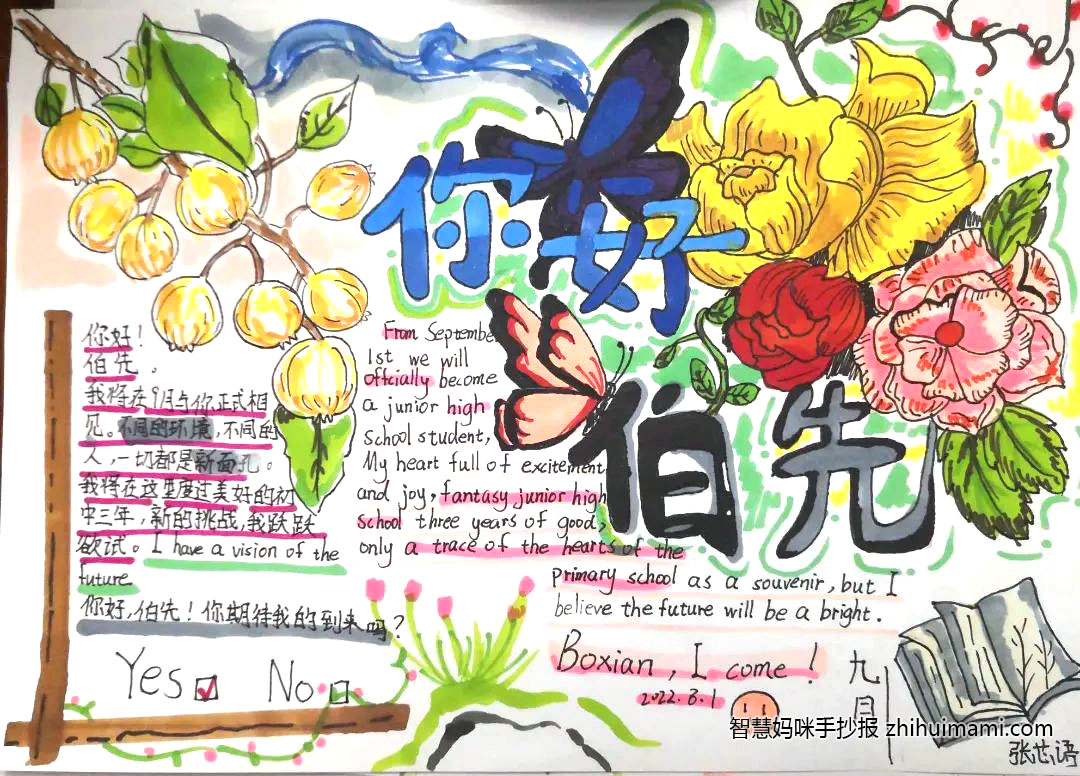 你好
伯先
你好！
伯先。
我将在9月与你正式相
见。不同的环境，不同的
人，一切都是新面孔。
我将在这里度过美好的初
中三年，新的挑战，我跃跃
欲试。I have a vision of the
future
你好，伯先！你期待我的到来吗？
Yes ☑ No □
From Septembe
1st we will
offcially become
a junior high
school student,
My heart full of excitement
and joy, fantasy junior high
school three years of good,
only a trace of the hearts of the
primary school as a souvenir, but I
believe the future will be a bright.
Boxian, I come!
2022.3.1
九月
张芯语
智慧妈咪手抄报 zhihuimami.com